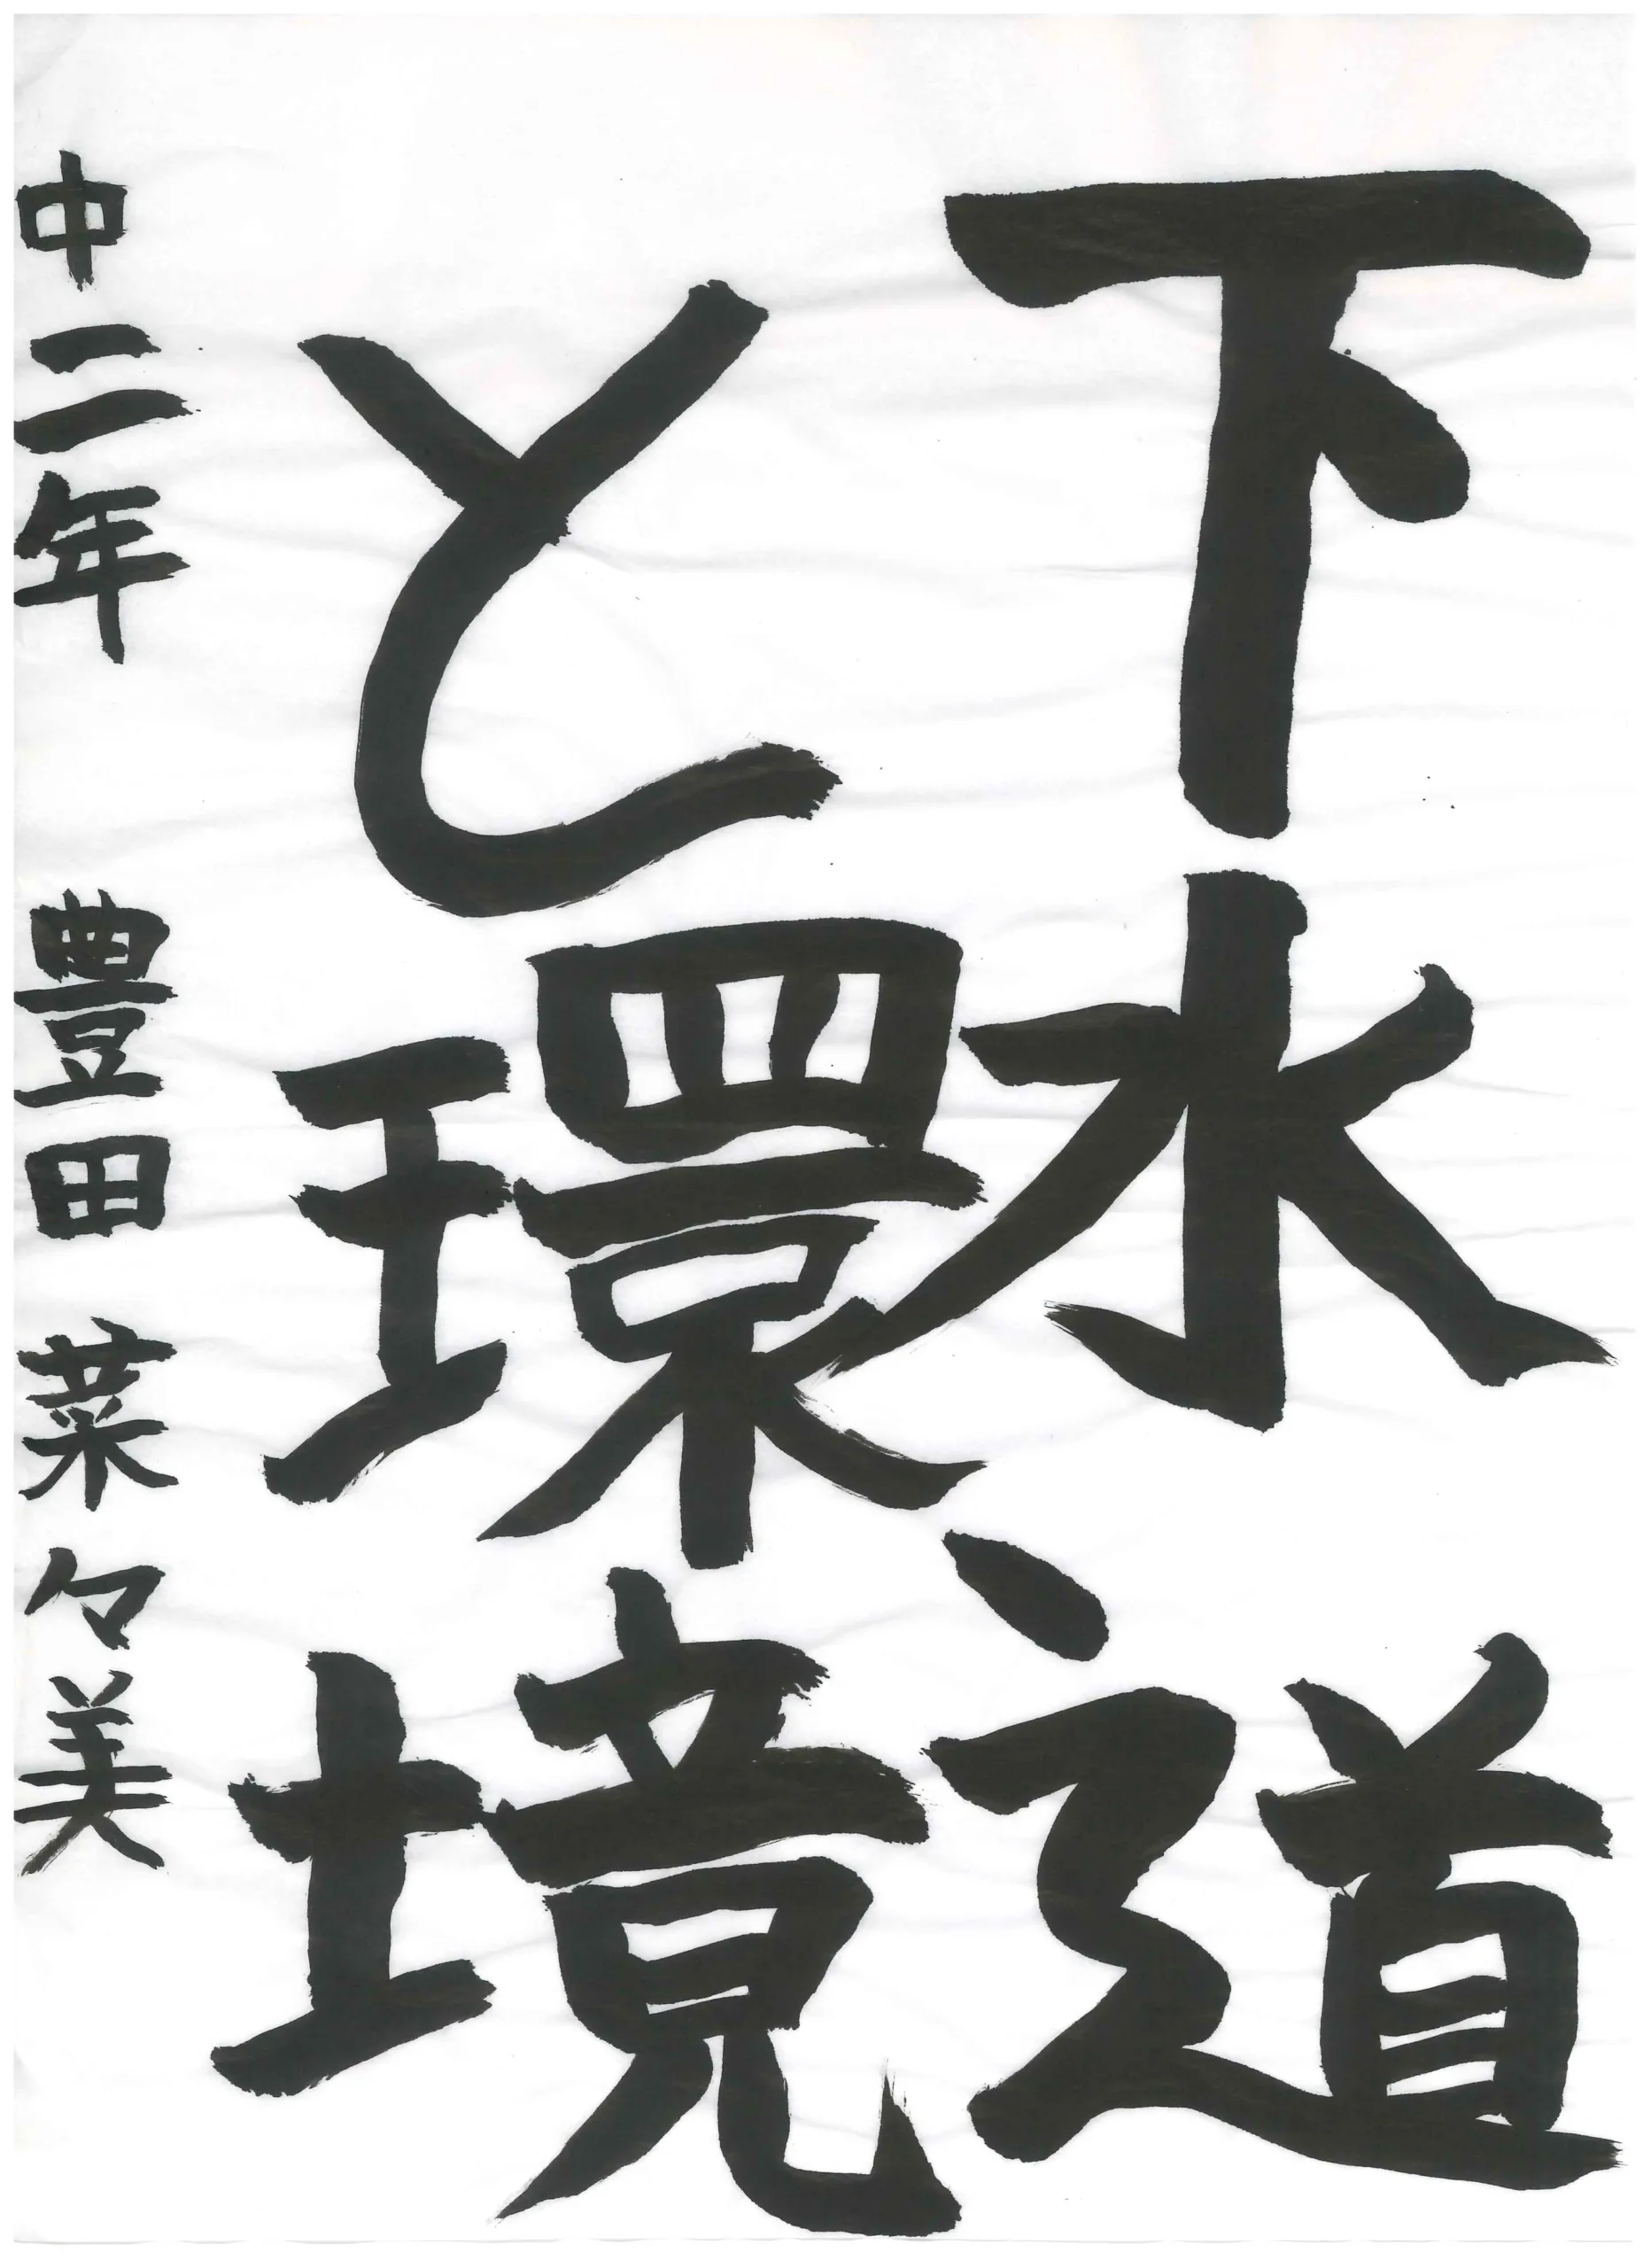 下水道
と環境
中二年 豊田菜々美